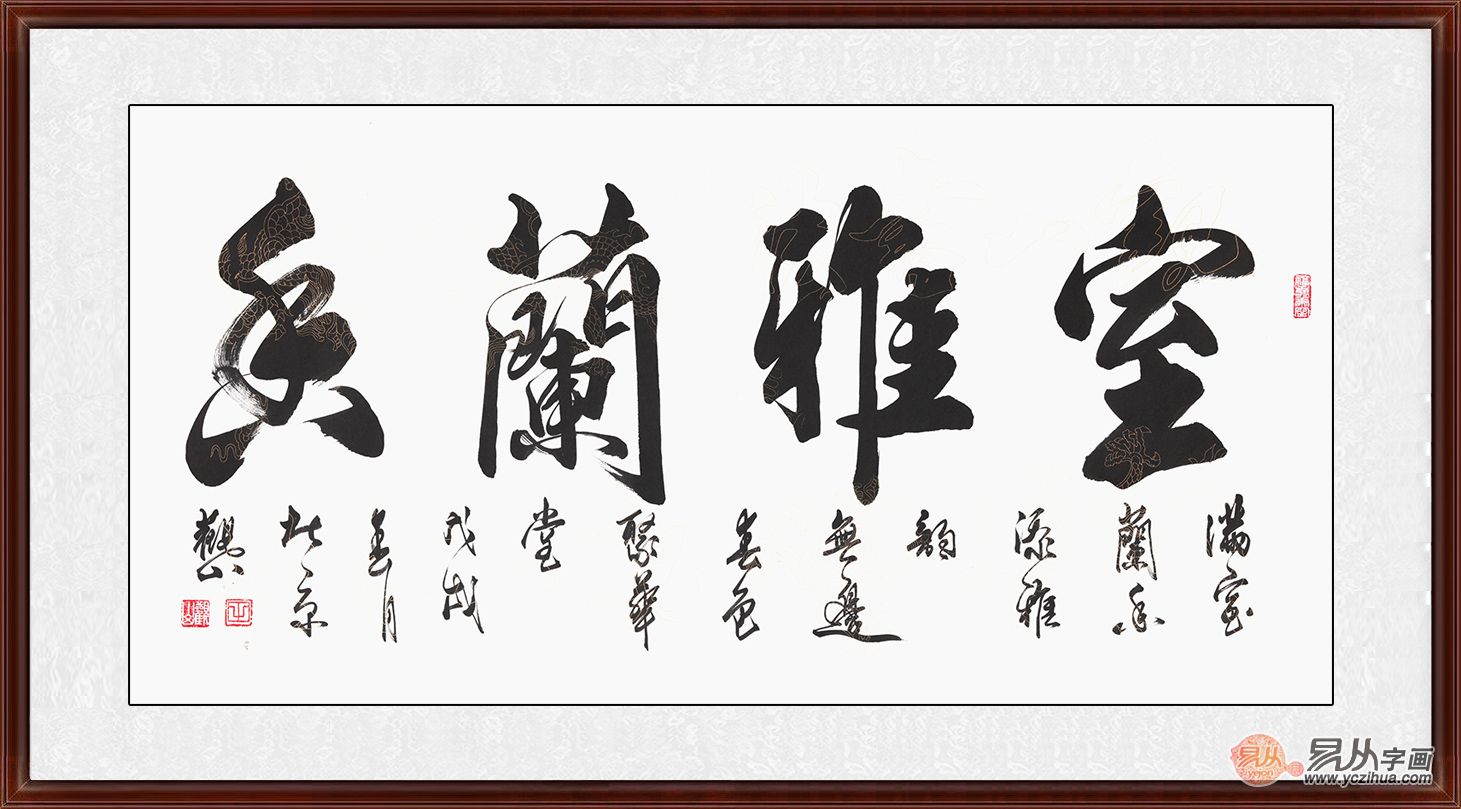 室雅蘭香
滿室
蘭香
添雅
韻
無邊
春色
聚華
堂
戊戌
春月
於京
觀山
觀山
易从字画
www.yczihua.com